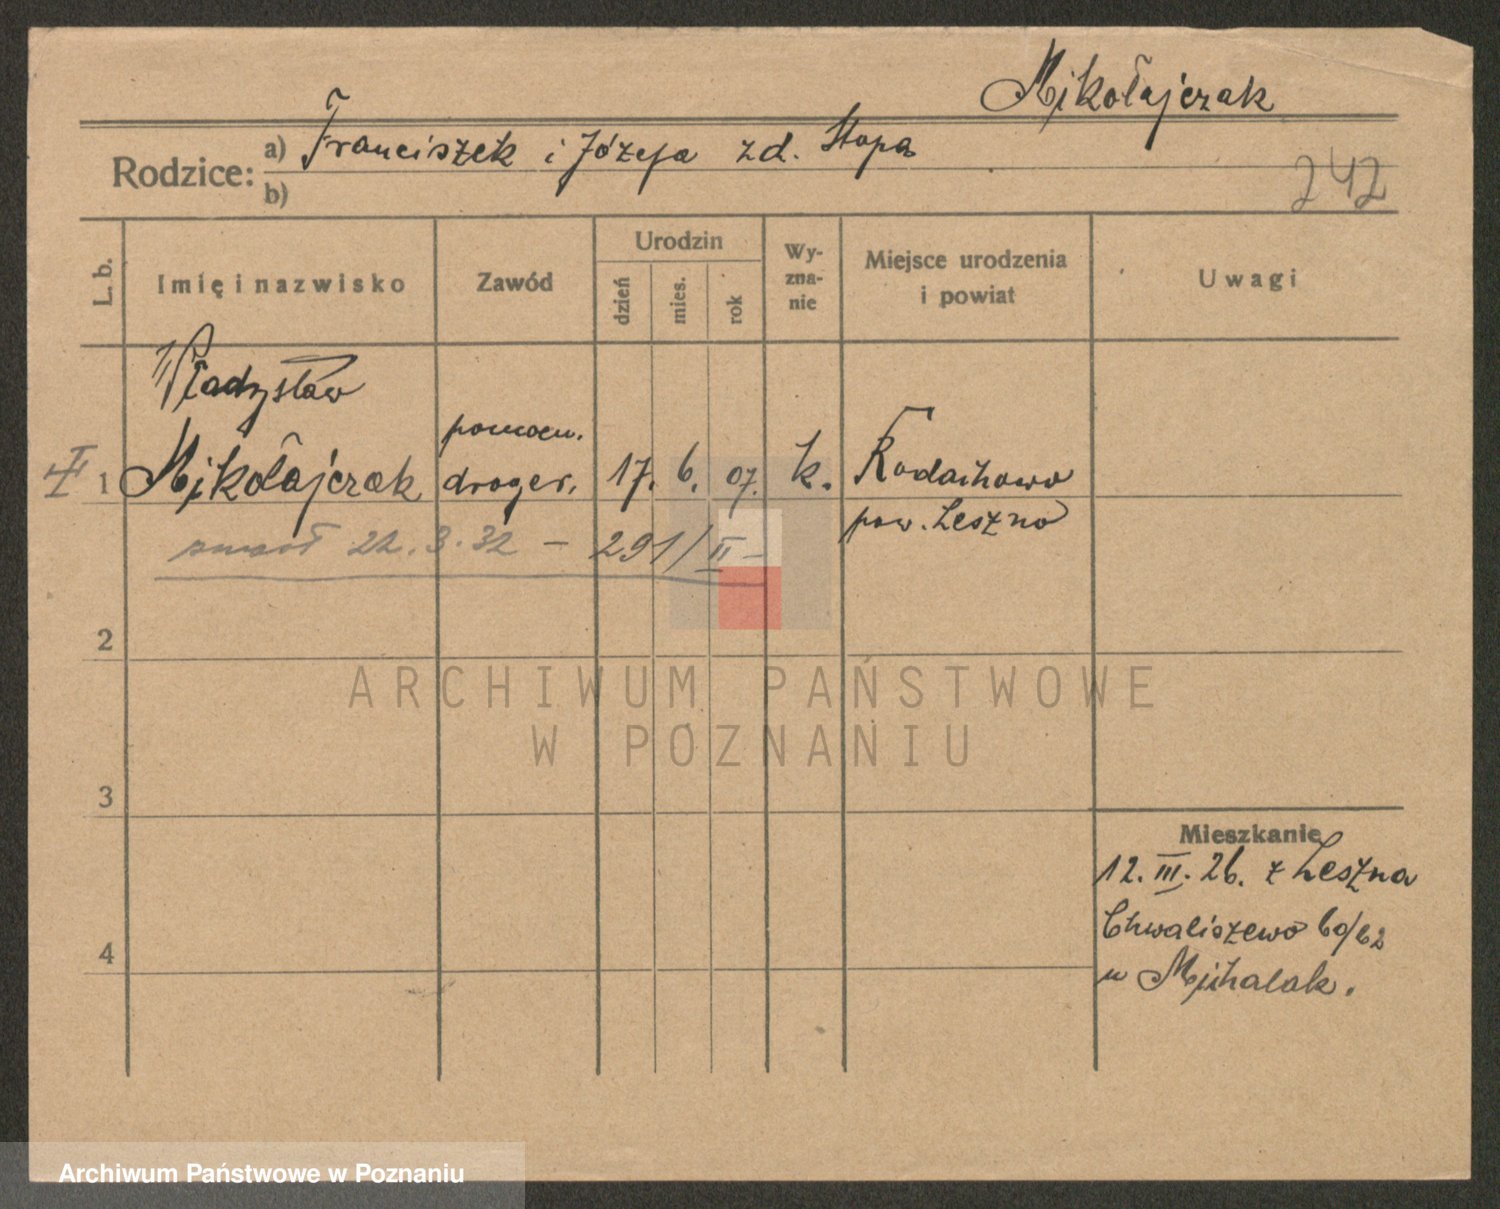 Mikołajczak
Rodzice: a) Franciszek i Józefa zd. Stopa
b)
242
L. b.
Imię i nazwisko
Zawód
Urodzin
dzień
mies.
rok
Wy-
zna-
nie
Miejsce urodzenia
i powiat
Uwagi
Władysław
1 Mikołajczak
pomocn.
droger.
17. 6. 07.
k.
Radachowo
pow. Leszno
zmarł 22.3.32 – 291/II –
2
3
4
Mieszkanie
12. III. 26. z Leszna
Chwaliszewo 60/62
u Michalak.
ARCHIWUM PAŃSTWOWE
W POZNANIU
Archiwum Państwowe w Poznaniu